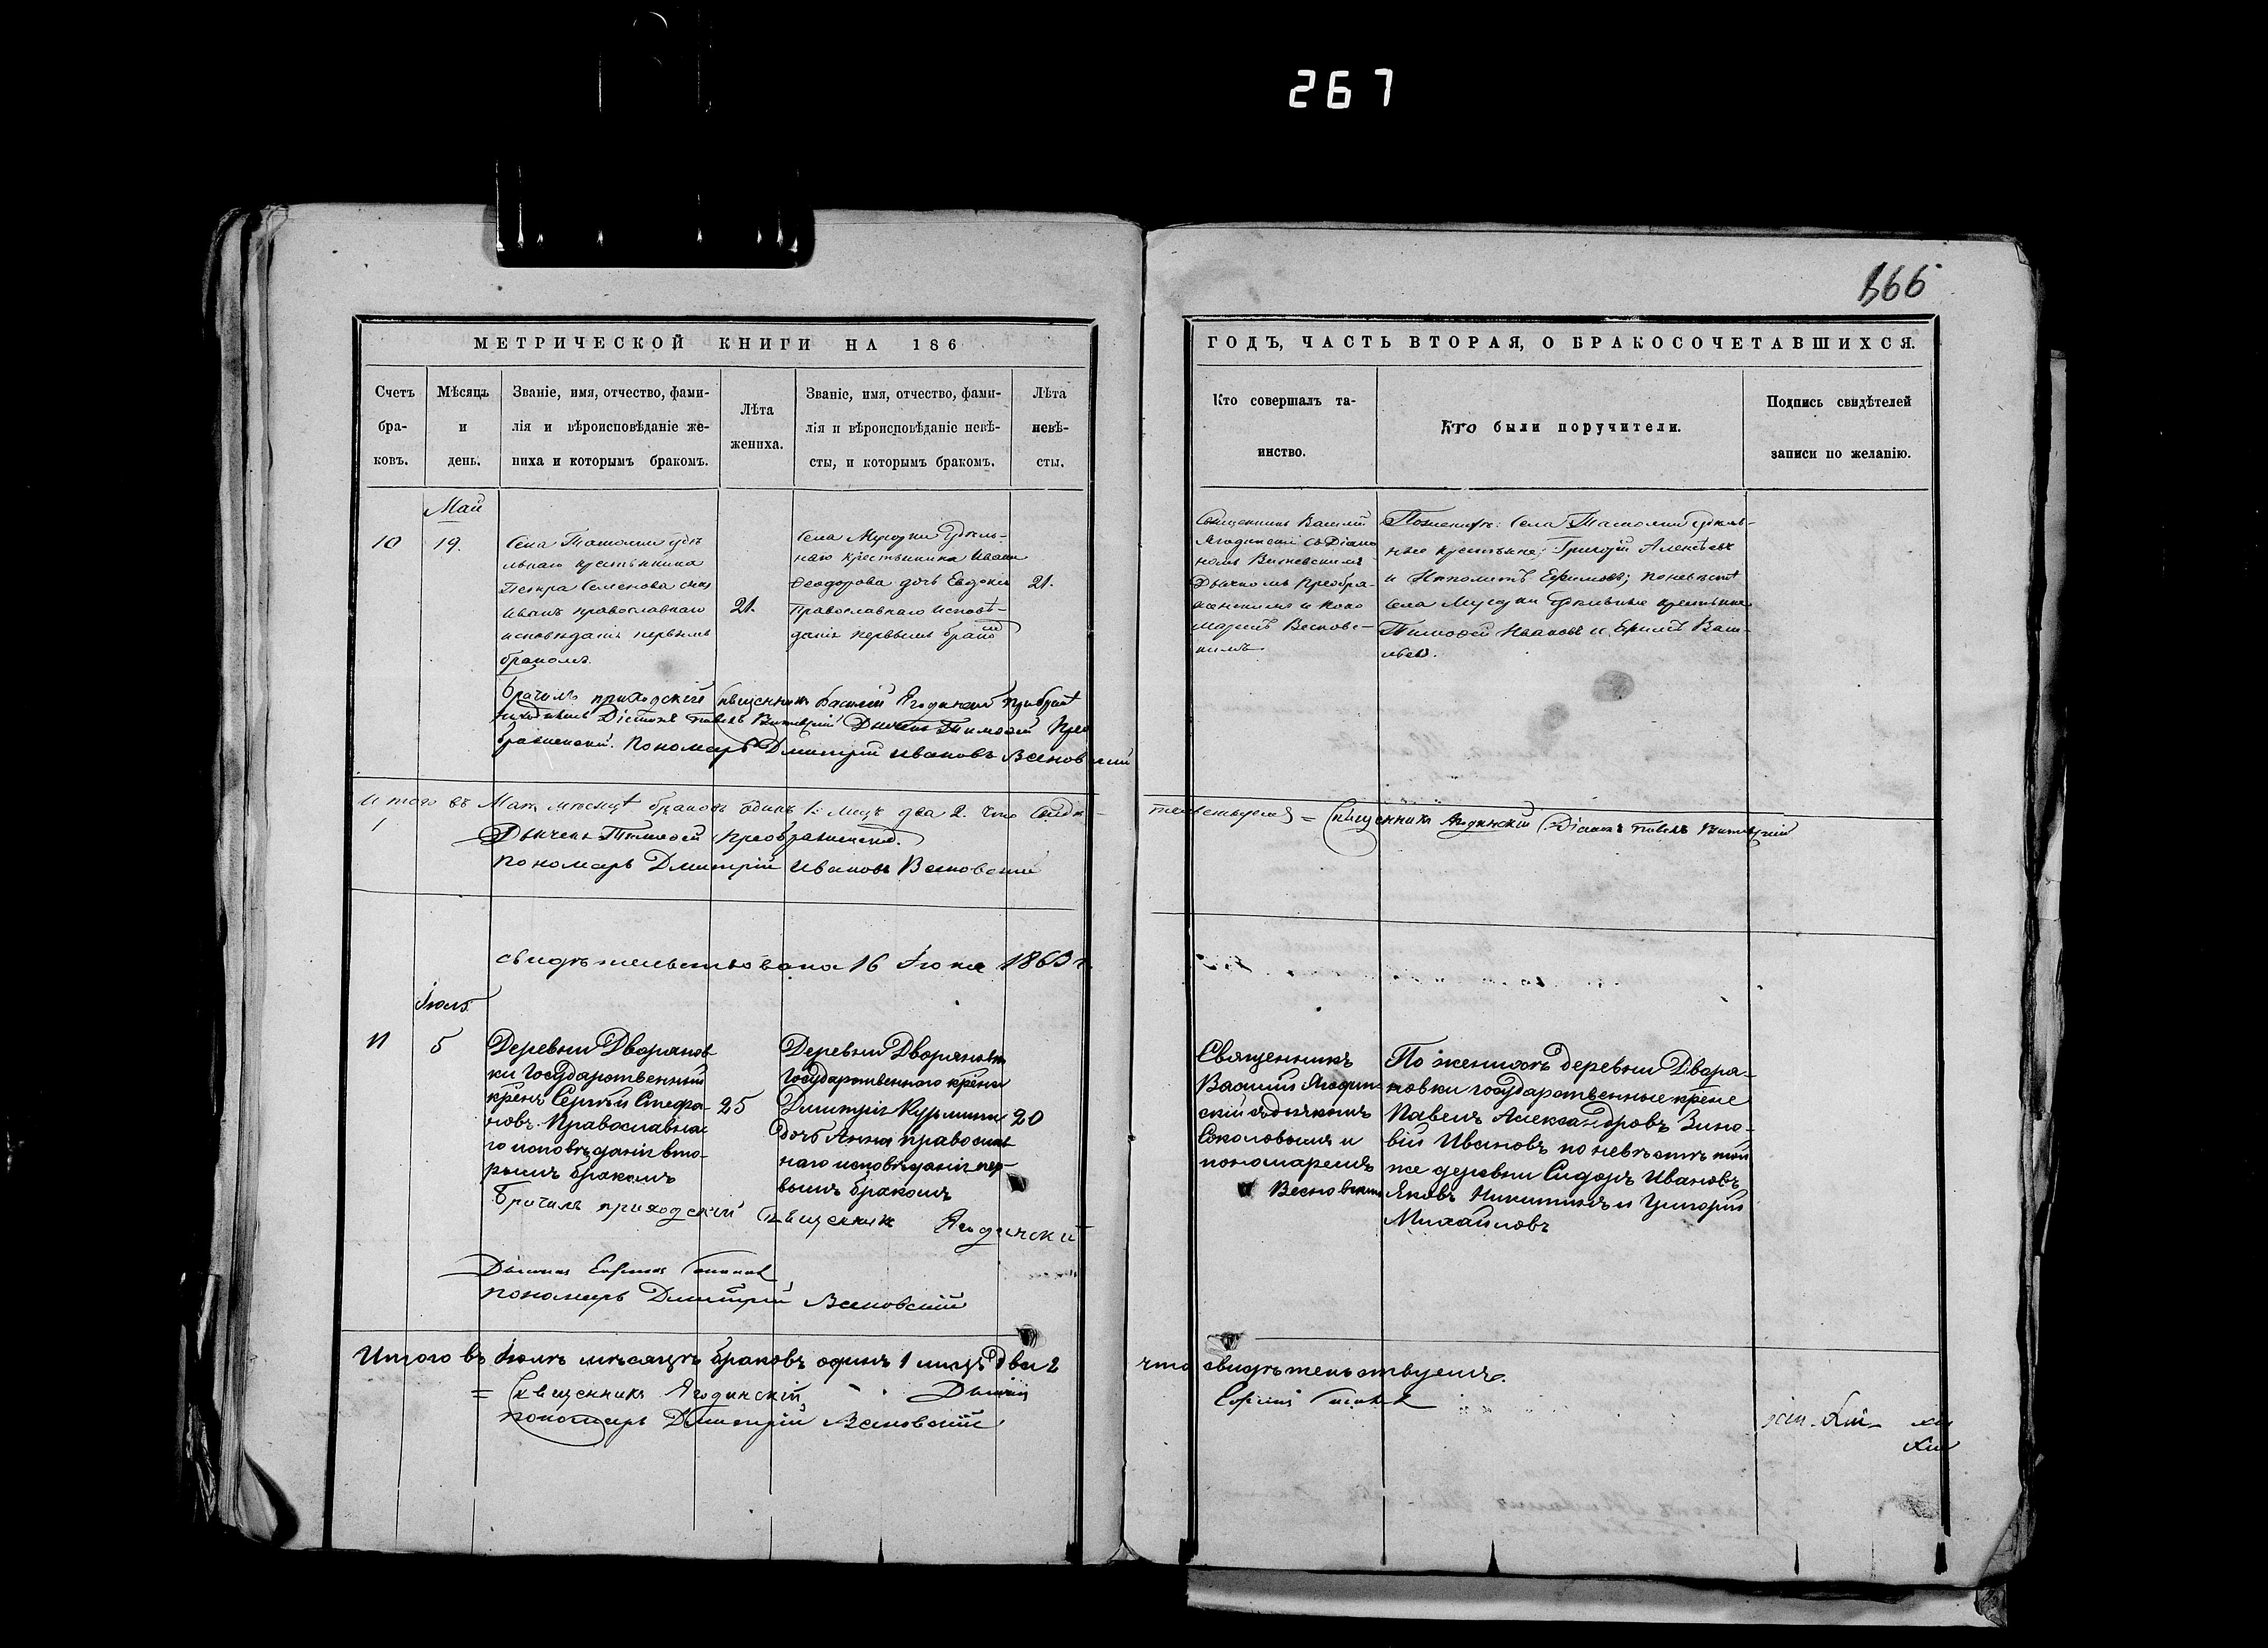 267
166
МЕТРИЧЕСКОЙ КНИГИ НА 186
ГОДЪ, ЧАСТЬ ВТОРАЯ, О БРАКОСОЧЕТАВШИХСЯ.
Счетъ
бра-
ковъ.
Мѣсяцъ
и
день.
Званіе, имя, отчество, фами-
лія и вѣроисповѣданіе же-
ниха и которымъ бракомъ.
Лѣта
жениха.
Званіе, имя, отчество, фами-
лія и вѣроисповѣданіе невѣ-
сты, и которымъ бракомъ.
Лѣта
невѣ-
сты.
Кто совершалъ та-
инство.
Кто были поручители.
Подпись свидѣтелей
записи по желанію.
Май
10
19.
Села
льнаго крестьянина
Петра Семенова сынъ
Иванъ православнаго
исповѣданія первымъ
бракомъ.
21.
Села Мусорки Удѣль-
наго крестьянина Ивана
Ѳеодорова дочь Евдокія
Православнаго исповѣ-
данія первымъ бракомъ
21.
Священникъ Василій
Ягодинскій съ Діако
номъ
Дьячкомъ Преобра-
женскимъ и поно
маремъ Веснов-
скимъ
По женихѣ: Села удѣль-
ные крестьяне; Григорій Алексѣевъ
и Ипполитъ Ефимовъ; по невѣстѣ
села Мусорки Удѣльные крестьяне
Тимофей Ивановъ и Ефимъ Васи-
льевъ.
Врачилъ приходскій священникъ Василій Ягодинскій при бракѣ
находились Діаконъ Павелъ Дьячекъ Тимофей Прео
браженскій. Пономарь Дмитрій Ивановъ Весновский
Итого въ Маѣ мѣсяцѣ браковъ одинъ 1. лицъ два 2. что свидѣ-
тельствуемъ = Священникъ Ягодинскій Діаконъ Павелъ
1
Дьячекъ Тимофей Преображенскій.
Пономарь Дмитрій Ивановъ Весновский
свидѣтельствована 16 Іюня 1863 г.
Іюль
11
5
Деревни Дворянов
ки Государственный
крѣнъ Сергѣй Стефа-
новъ Православна-
го исповѣданія вто-
рымъ бракомъ
25
Деревни Дворяновки
Государственнаго крѣна
Димитрія Курмина
дочь Анна православ
наго исповѣданія пер-
вымъ бракомъ
20
Священникъ
Василій Ягодин
скій съ дьячкомъ
Соколовымъ и
пономаремъ
Весновскимъ
По женихѣ деревни Дворя-
новки государственные крѣне
Павелъ Александровъ Зино-
вій Ивановъ по невѣстѣ той
же деревни Сидоръ Ивановъ
Яковъ Никитинъ и Григорій
Михайловъ
Врачилъ приходский священник Ягодинский
Пономарь Дмитрій Весновский
Итого въ Іюлѣ мѣсяцѣ браковъ одинъ 1 лицъ два 2
что свидѣтельствуемъ.
= Священникъ Ягодинскій, Дьячекъ
Пономарь Дмитрій Весновский